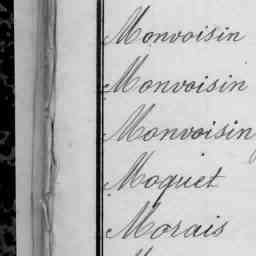 Monvoisin
Monvoisin
Monvoisin
Moquet
Morais